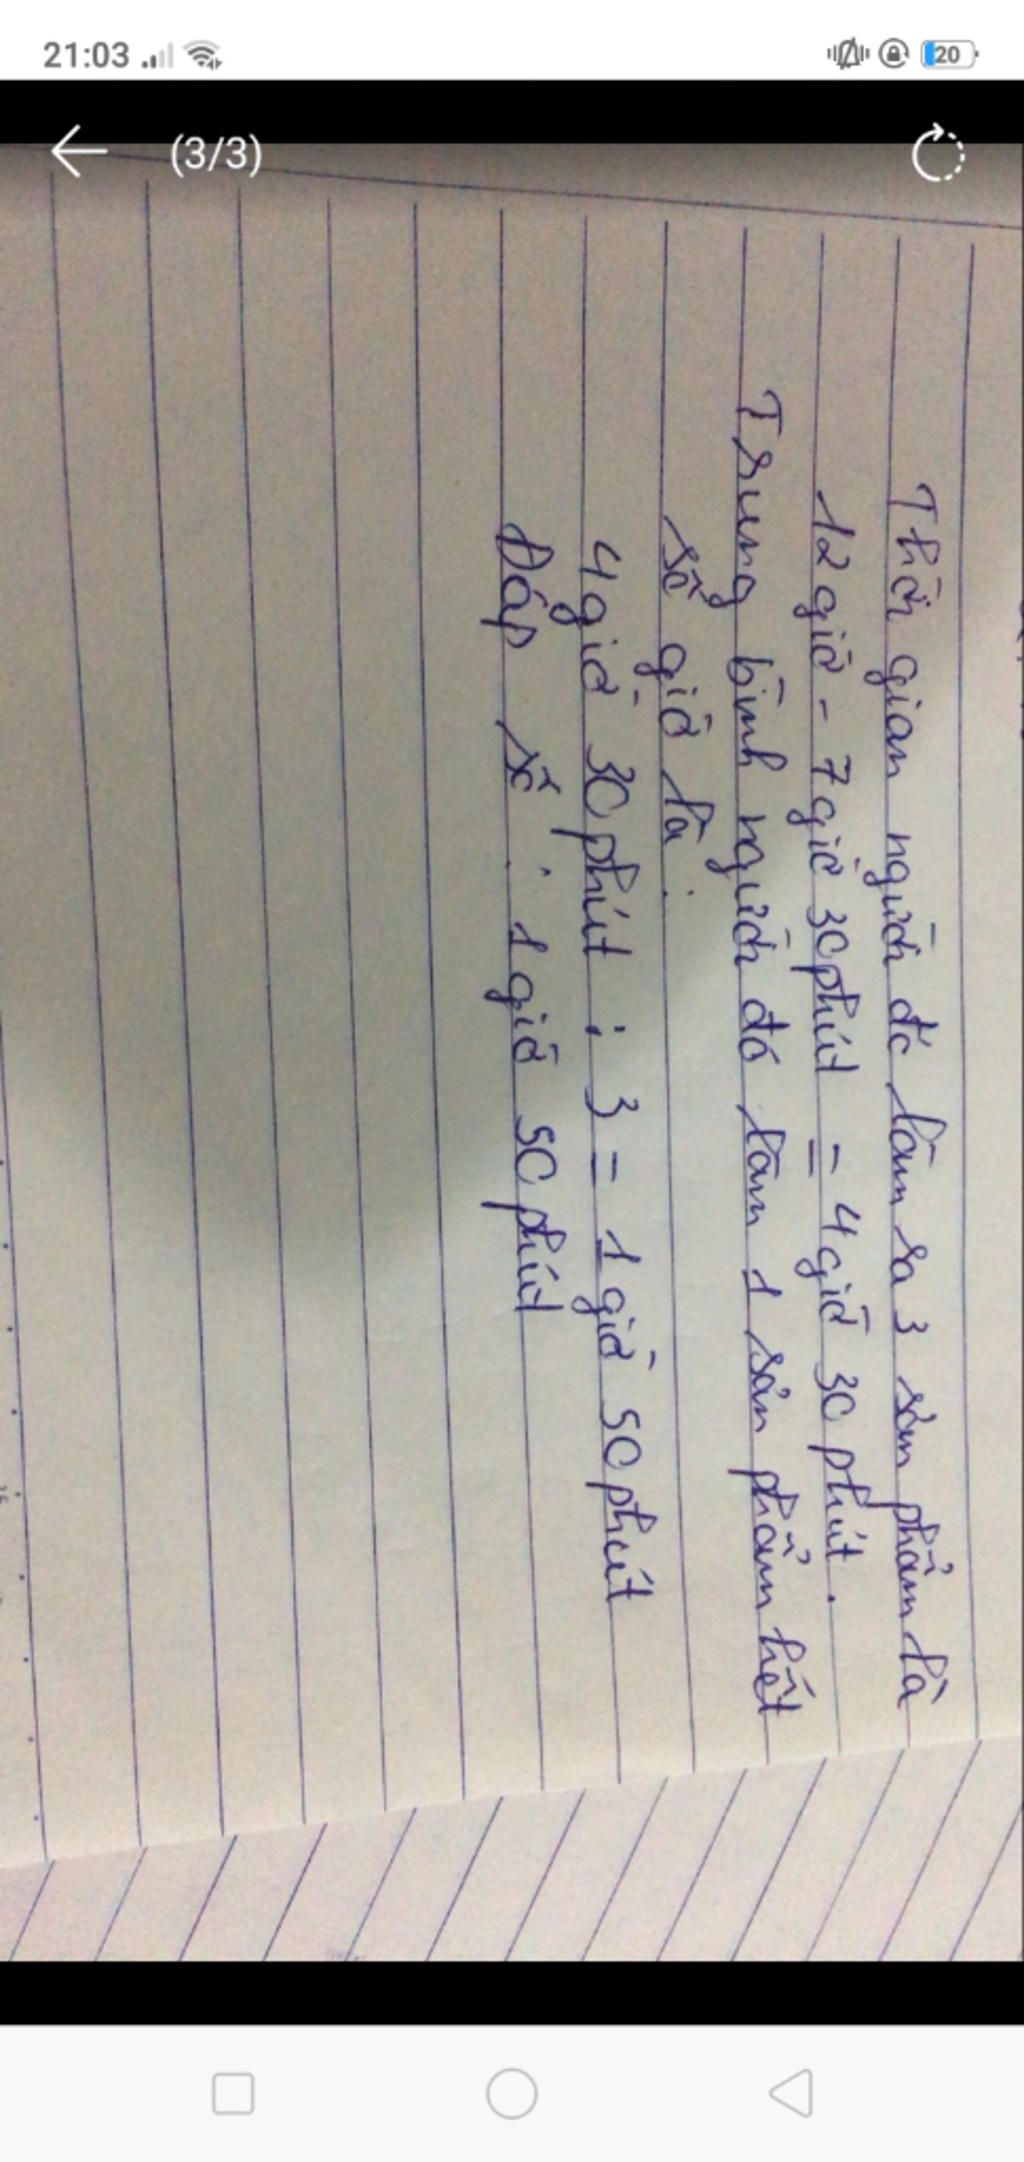 21:03
20
(3/3)
Thời gian người đó làm ra 3 sản phẩm là
12 giờ - 7 giờ 30 phút = 4 giờ 30 phút.
Trung bình người đó làm 1 sản phẩm hết
số giờ là :
4 giờ 30 phút : 3 = 1 giờ 50 phút
Đáp số : 1 giờ 50 phút